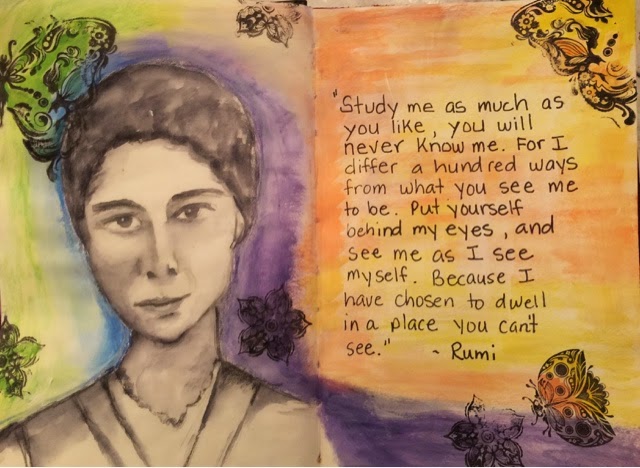 "Study me as much as
you like, you will
never know me. For I
differ a hundred ways
from what you see me
to be. Put yourself
behind my eyes, and
see me as I see
myself. Because I
have chosen to dwell
in a place you can't
see." ~ Rumi